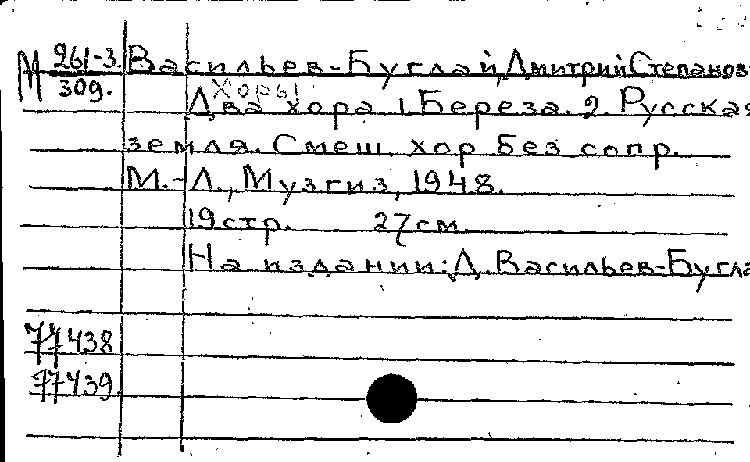 М 261-3 Васильев-Буглай, Дмитрий Степанов
309. Хоры
Два хора 1. Береза. 2. Русская
земля. Смеш. хор без сопр.
М.-Л., Музгиз, 1948.
19 стр. 27 см.
На издании: Д. Васильев-Бугла
77438
77439